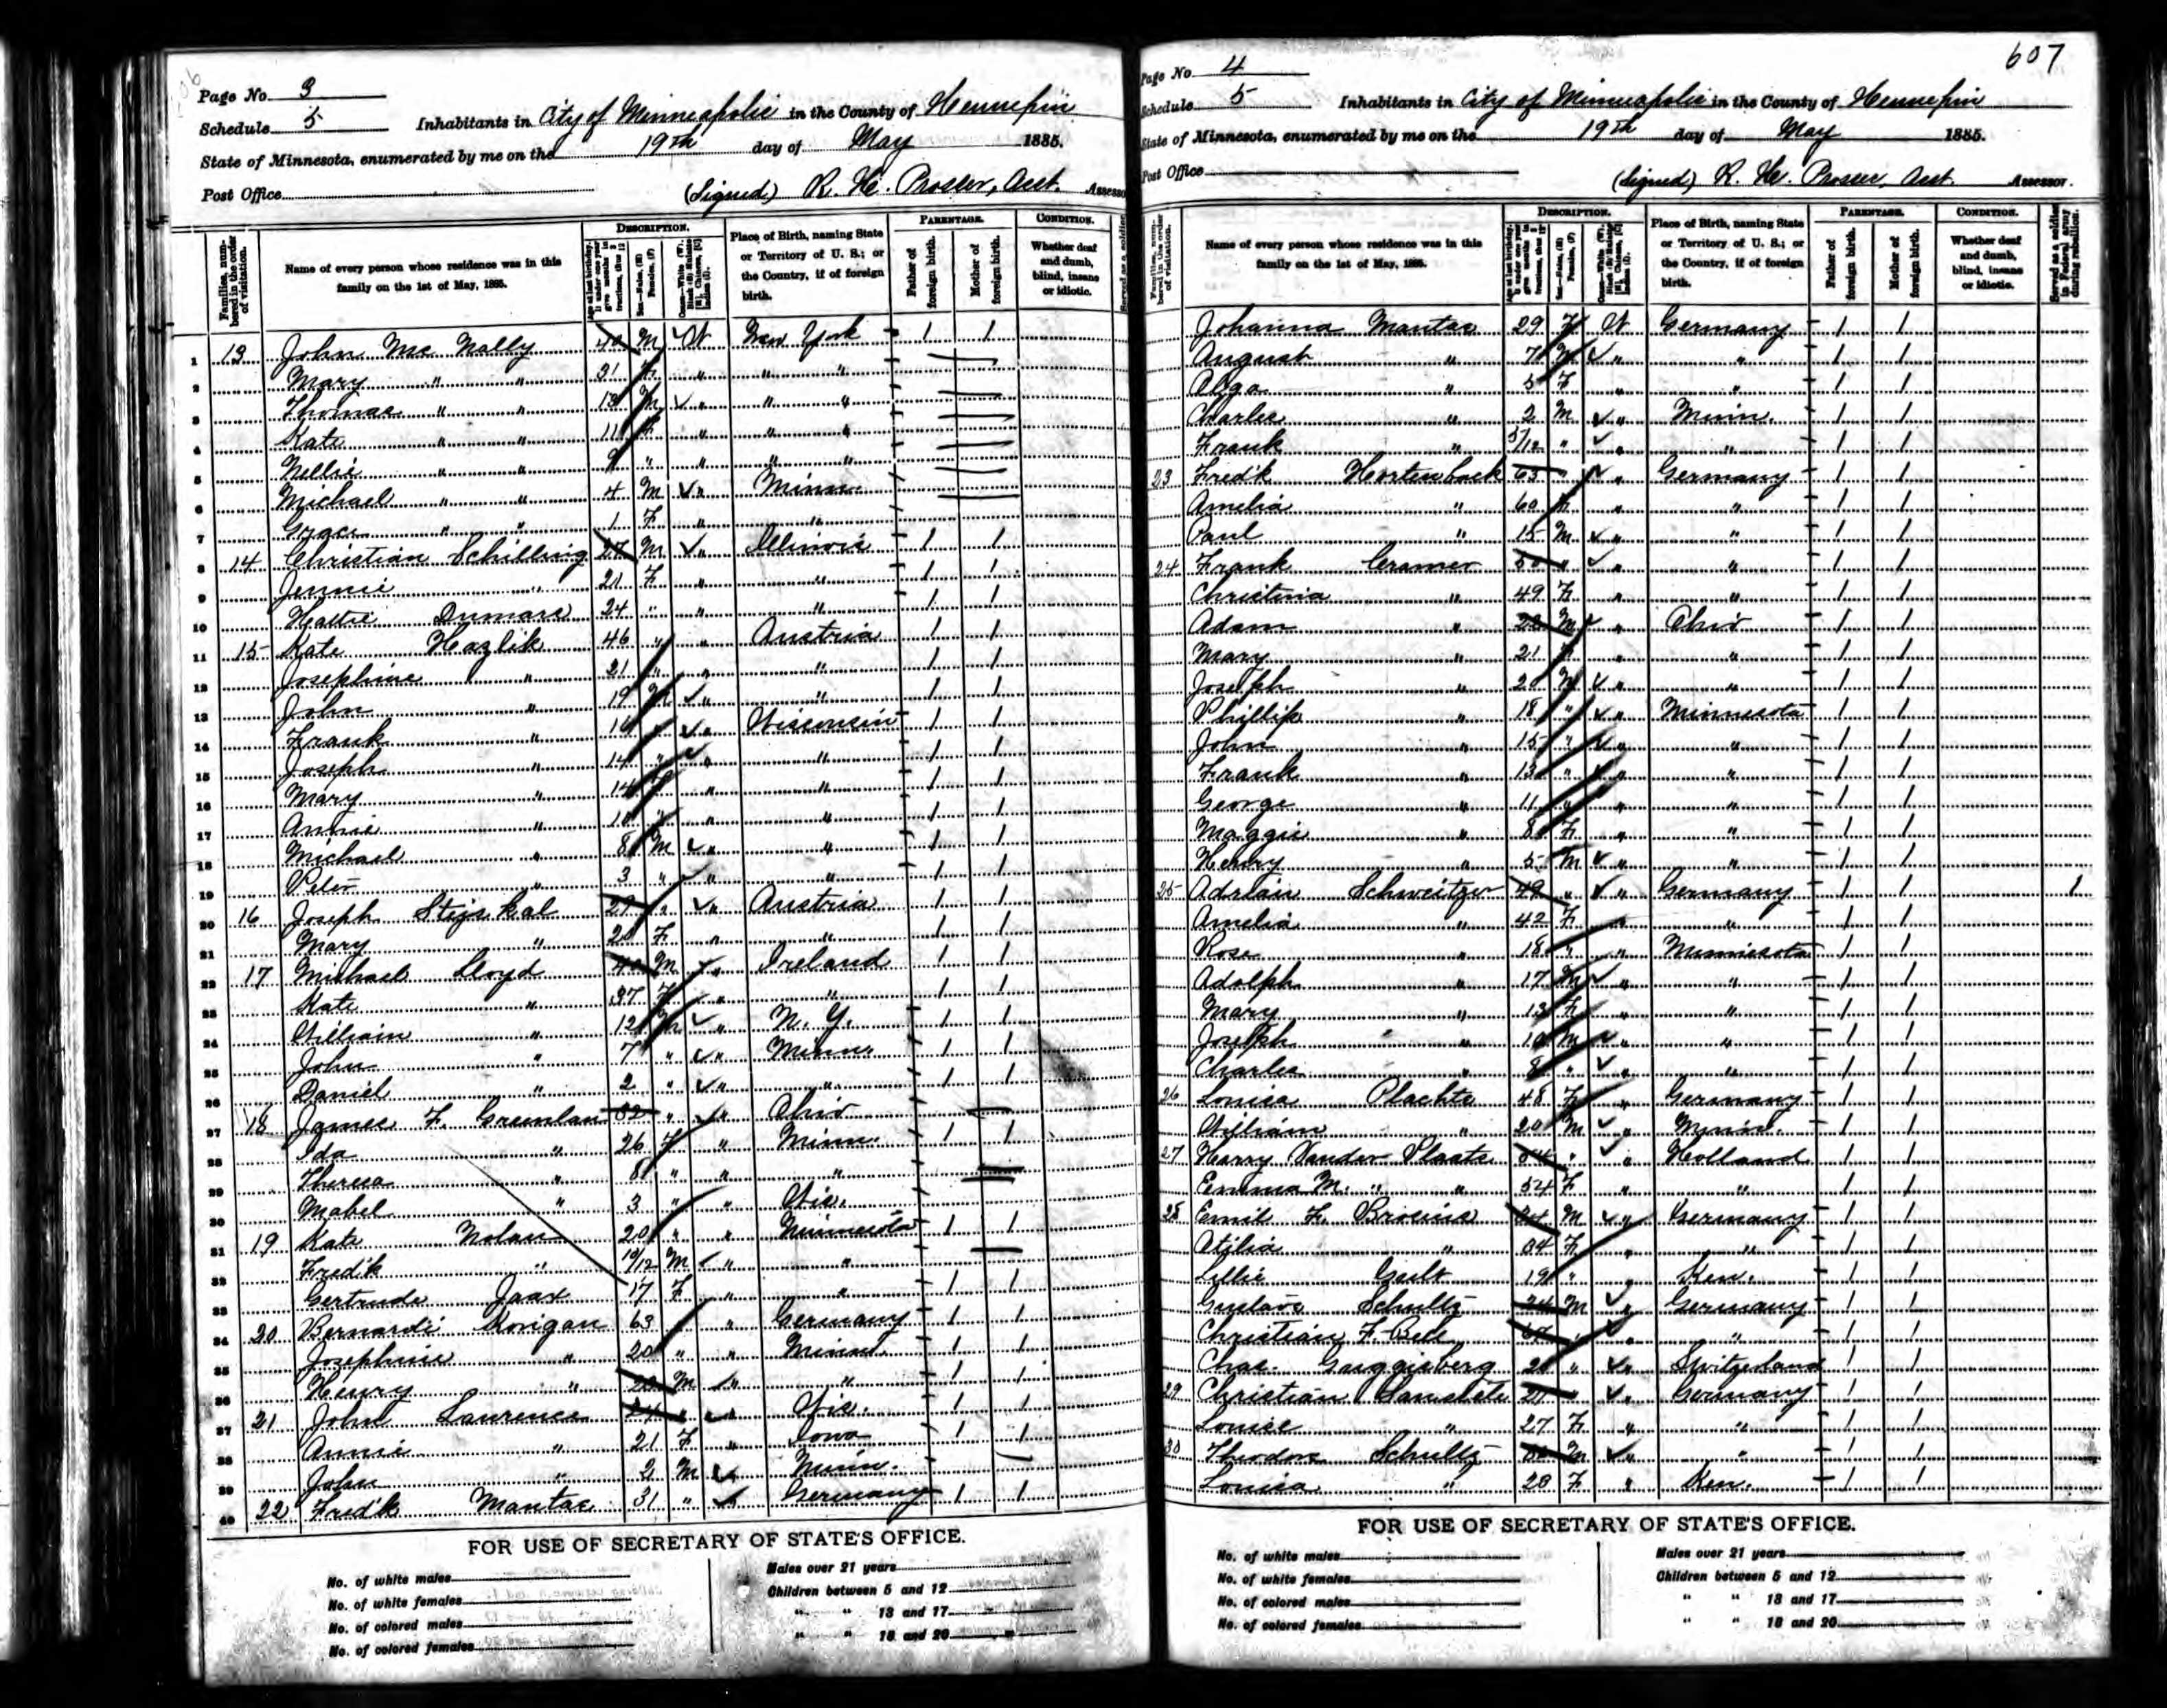 Page No. 3
Schedule 5 Inhabitants in City of Minneapolis in the County of Hennepin
State of Minnesota, enumerated by me on the 19th day of May 1885.
Post Office (Signed) R. H. Prosser, Asst. Assessor
Families, numbered in the order of visitation.
Name of every person whose residence was in this family on the 1st of May, 1885.
DESCRIPTION.
Place of Birth, naming State or Territory of U. S.; or the Country, if of foreign birth.
PARENTAGE.
Father of foreign birth.
Mother of foreign birth.
CONDITION.
Whether deaf and dumb, blind, insane or idiotic.
1 13 John Mc Nally 40 M W New York 1 1
2 Mary " " 31 F " " "
3 Thomas " " 13 M " " "
4 Kate " " 11 F " " "
5 Nellie " " 9 " " " "
6 Michael " " 4 M " Minn.
7 Grace " " 1 F " "
8 14 Christian Schilling 27 M " Illinois 1 1
9 Jennie " 21 F " " 1 1
10 Hattie Dumars 24 " " " 1 1
11 15 Kate Hazlik 46 " " Austria 1 1
12 Josephine " 21 " " " 1 1
13 John " 19 M " " 1 1
14 Frank " 16 " " Wisconsin 1 1
15 Joseph " 14 " " " 1 1
16 Mary " 14 F " " 1 1
17 Annie " 10 " " " 1 1
18 Michael " 8 M " " 1 1
19 Peter " 3 " " " 1 1
20 16 Joseph Stejskal 27 " " Austria 1 1
21 Mary " 20 F " " 1 1
22 17 Michael Lloyd 40 M " Ireland 1 1
23 Kate " 37 F " " 1 1
24 William " 12 M " N. Y. 1 1
25 John " 7 " " Minn. 1 1
26 Daniel " 2 " " " 1 1
27 18 James F. Greenlan 32 " " Ohio
28 Ida " 26 F " Minn. 1 1
29 Theresa " 8 " " "
30 Mabel " 3 " " Wis.
31 19 Kate Nolan 20 " " Minnesota 1 1
32 Fredk " 10/12 M " "
33 Gertrude Jaax 17 F " " 1 1
34 20 Bernardi Korigan 63 " " Germany 1 1
35 Josephine " 20 " " Minn. 1 1
36 Henry " M " " 1 1
37 21 John Laurence 24 " " Wis. 1 1
38 Annie " 21 F " Iowa 1 1
39 John " 2 M " Minn.
40 22 Fredk Mantac 31 " " Germany 1 1
FOR USE OF SECRETARY OF STATE'S OFFICE.
No. of white males
No. of white females
No. of colored males
No. of colored females
Males over 21 years
Children between 5 and 12
" " 13 and 17
" " 18 and 20
607
Page No. 4
Schedule 5 Inhabitants in City of Minneapolis in the County of Hennepin
State of Minnesota, enumerated by me on the 19th day of May 1885.
Post Office (Signed) R. H. Prosser, Asst. Assessor.
Families, numbered in the order of visitation.
Name of every person whose residence was in this family on the 1st of May, 1885.
DESCRIPTION.
Place of Birth, naming State or Territory of U. S.; or the Country, if of foreign birth.
PARENTAGE.
Father of foreign birth.
Mother of foreign birth.
CONDITION.
Whether deaf and dumb, blind, insane or idiotic.
Served as a soldier in Federal army during rebellion.
Johanna Mantac 29 F W Germany 1 1
August " 7 M " " 1 1
Olga " 5 F " " 1 1
Charles " 2 M " Minn. 1 1
Frank " 5/12 " " " 1 1
23 Fredk Hortenbach 63 " " Germany 1 1
Amelia " 60 F " " 1 1
Paul " 15 M " " 1 1
24 Frank Cramer 50 " " " 1 1
Christina " 49 F " " 1 1
Adam " M " Ohio 1 1
Mary " 21 F " " 1 1
Joseph " 20 M " " 1 1
Phillip " 18 " " Minnesota 1 1
John " 15 " " " 1 1
Frank " 13 " " " 1 1
George " 11 " " " 1 1
Maggie " 8 F " " 1 1
Henry " 5 M " " 1 1
25 Adrian Schweitzer 49 " " Germany 1 1 1
Amelia " 42 F " " 1 1
Rose " 18 " " Minnesota 1 1
Adolph " 17 M " " 1 1
Mary " 13 F " " 1 1
Joseph " 10 M " " 1 1
Charles " 8 " " " 1 1
26 Louisa Plachte 48 F " Germany 1 1
William " 20 M " Minn. 1 1
27 Harry Vander Plaats " " Holland 1 1
Emma M. " " 54 F " " 1 1
28 Emil F. Brosius M " Germany 1 1
Otilia " 34 F " " 1 1
Lillie Geilt 19 " " Ken. 1 1
Gustave Schultz 24 M " Germany 1 1
Christian F. Bell " " " 1 1
Chas. Guggisberg 21 " " Switzerland 1 1
29 Christian Lanslete " " Germany 1 1
Louise " 27 F " " 1 1
30 Theodore Schultz M " " 1 1
Louisa " 28 F " Ken. 1 1
FOR USE OF SECRETARY OF STATE'S OFFICE.
No. of white males
No. of white females
No. of colored males
No. of colored females
Males over 21 years
Children between 5 and 12
" " 13 and 17
" " 18 and 20